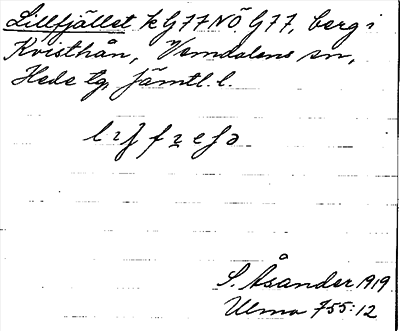 Lillfjället k G77NÖ. G77, berg i
Kvisthån, Vemdalens sn,
Hede tg, Jämtl. l.
S. Åsander 1919.
Ulma 755:12